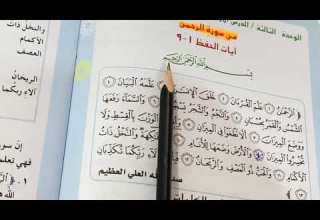 الوحدة الثالثة / الدرس
من سورة الرحمن
آيات الحفظ ١-٩
بِسْمِ اللَّهِ الرَّحْمَنِ الرَّحِيمِ
﴿ الرَّحْمَنُ ١ عَلَّمَ الْقُرْآنَ ٢ خَلَقَ الْإِنْسَانَ ٣ عَلَّمَهُ الْبَيَانَ ٤
الشَّمْسُ وَالْقَمَرُ بِحُسْبَانٍ ٥ وَالنَّجْمُ وَالشَّجَرُ يَسْجُدَانِ ٦ وَالسَّمَاءَ رَفَعَهَا
وَوَضَعَ الْمِيزَانَ ٧ أَلَّا تَطْغَوْا فِي الْمِيزَانِ ٨ وَأَقِيمُوا الْوَزْنَ بِالْقِسْطِ وَلَا
تُخْسِرُوا الْمِيزَانَ ٩ وَالْأَرْضَ وَضَعَهَا لِلْأَنَامِ ١٠ فِيهَا فَاكِهَةٌ وَالنَّخْلُ ذَاتُ
الْأَكْمَامِ ١١ وَالْحَبُّ ذُو الْعَصْفِ وَالرَّيْحَانُ ١٢ فَبِأَيِّ آلَاءِ رَبِّكُمَا تُكَذِّبَانِ
الله العلي العظيم
والنخل ذات
الأكمام
العصف
الريحان
آلاء ربكما
إن
فهي